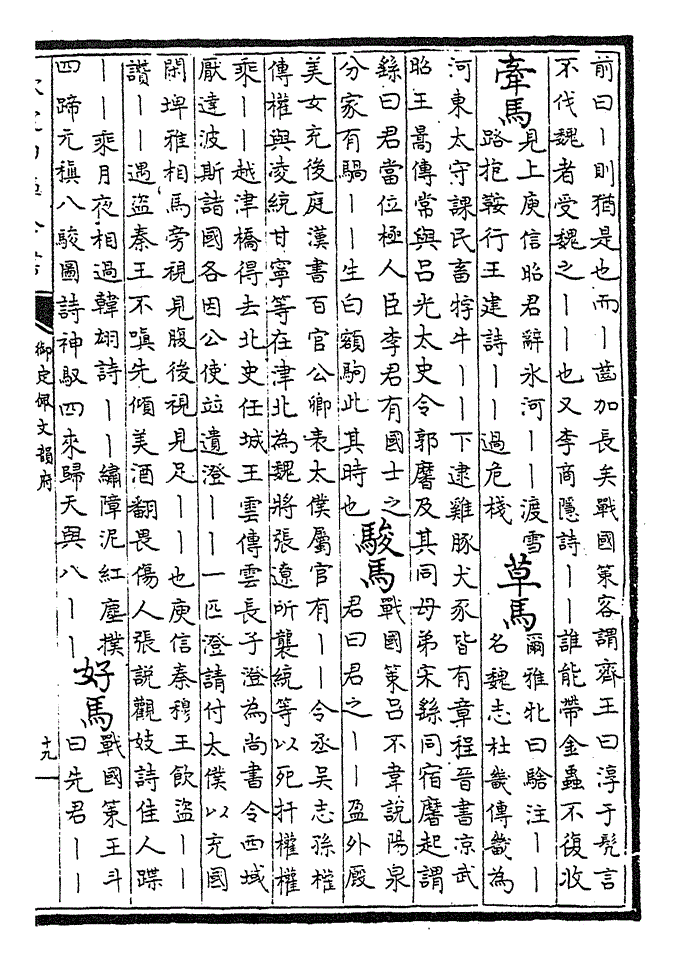 前曰｜則猶是也而｜齒加長矣戰國策客謂齊王曰淳于髠言
不伐魏者受魏之｜｜也又李商隱詩｜｜誰能帶金蟲不復收
牽馬
見上庾信昭君辭氷河｜｜渡雪
路抱鞍行王建詩｜｜過危棧
草馬
爾雅牝曰騇注｜｜
名魏志杜畿傳畿為
河東太守課民畜牸牛｜｜下逮雞豚犬豕皆有章程晉書凉武
昭王暠傳常與呂光太史令郭黁及其同母弟宋繇同宿黁起謂
繇曰君當位極人臣李君有國士之
分家有騧｜｜生白額駒此其時也
駿馬
戰國策呂不韋說陽泉
君曰君之｜｜盈外廐
美女充後庭漢書百官公卿表太僕屬官有｜｜令丞吳志孫權
傳權與凌統甘寧等在津北為魏將張遼所襲統等以死扞權權
乘｜｜越津橋得去北史任城王雲傳雲長子澄為尚書令西域
厭達波斯諸國各因公使並遺澄｜｜一匹澄請付太僕以充國
閑埤雅相馬旁視見腹後視見足｜｜也庾信秦穆王飲盜｜｜
讚｜｜遇盜秦王不嗔先傾美酒翻畏傷人張說觀妓詩佳人蹀
｜｜乘月夜相過韓翃詩｜｜繡障泥紅塵撲
四蹄元稹八駿圖詩神馭四來歸天與八｜｜
好馬
戰國策王斗
曰先君｜｜
御定佩文韻府
十九